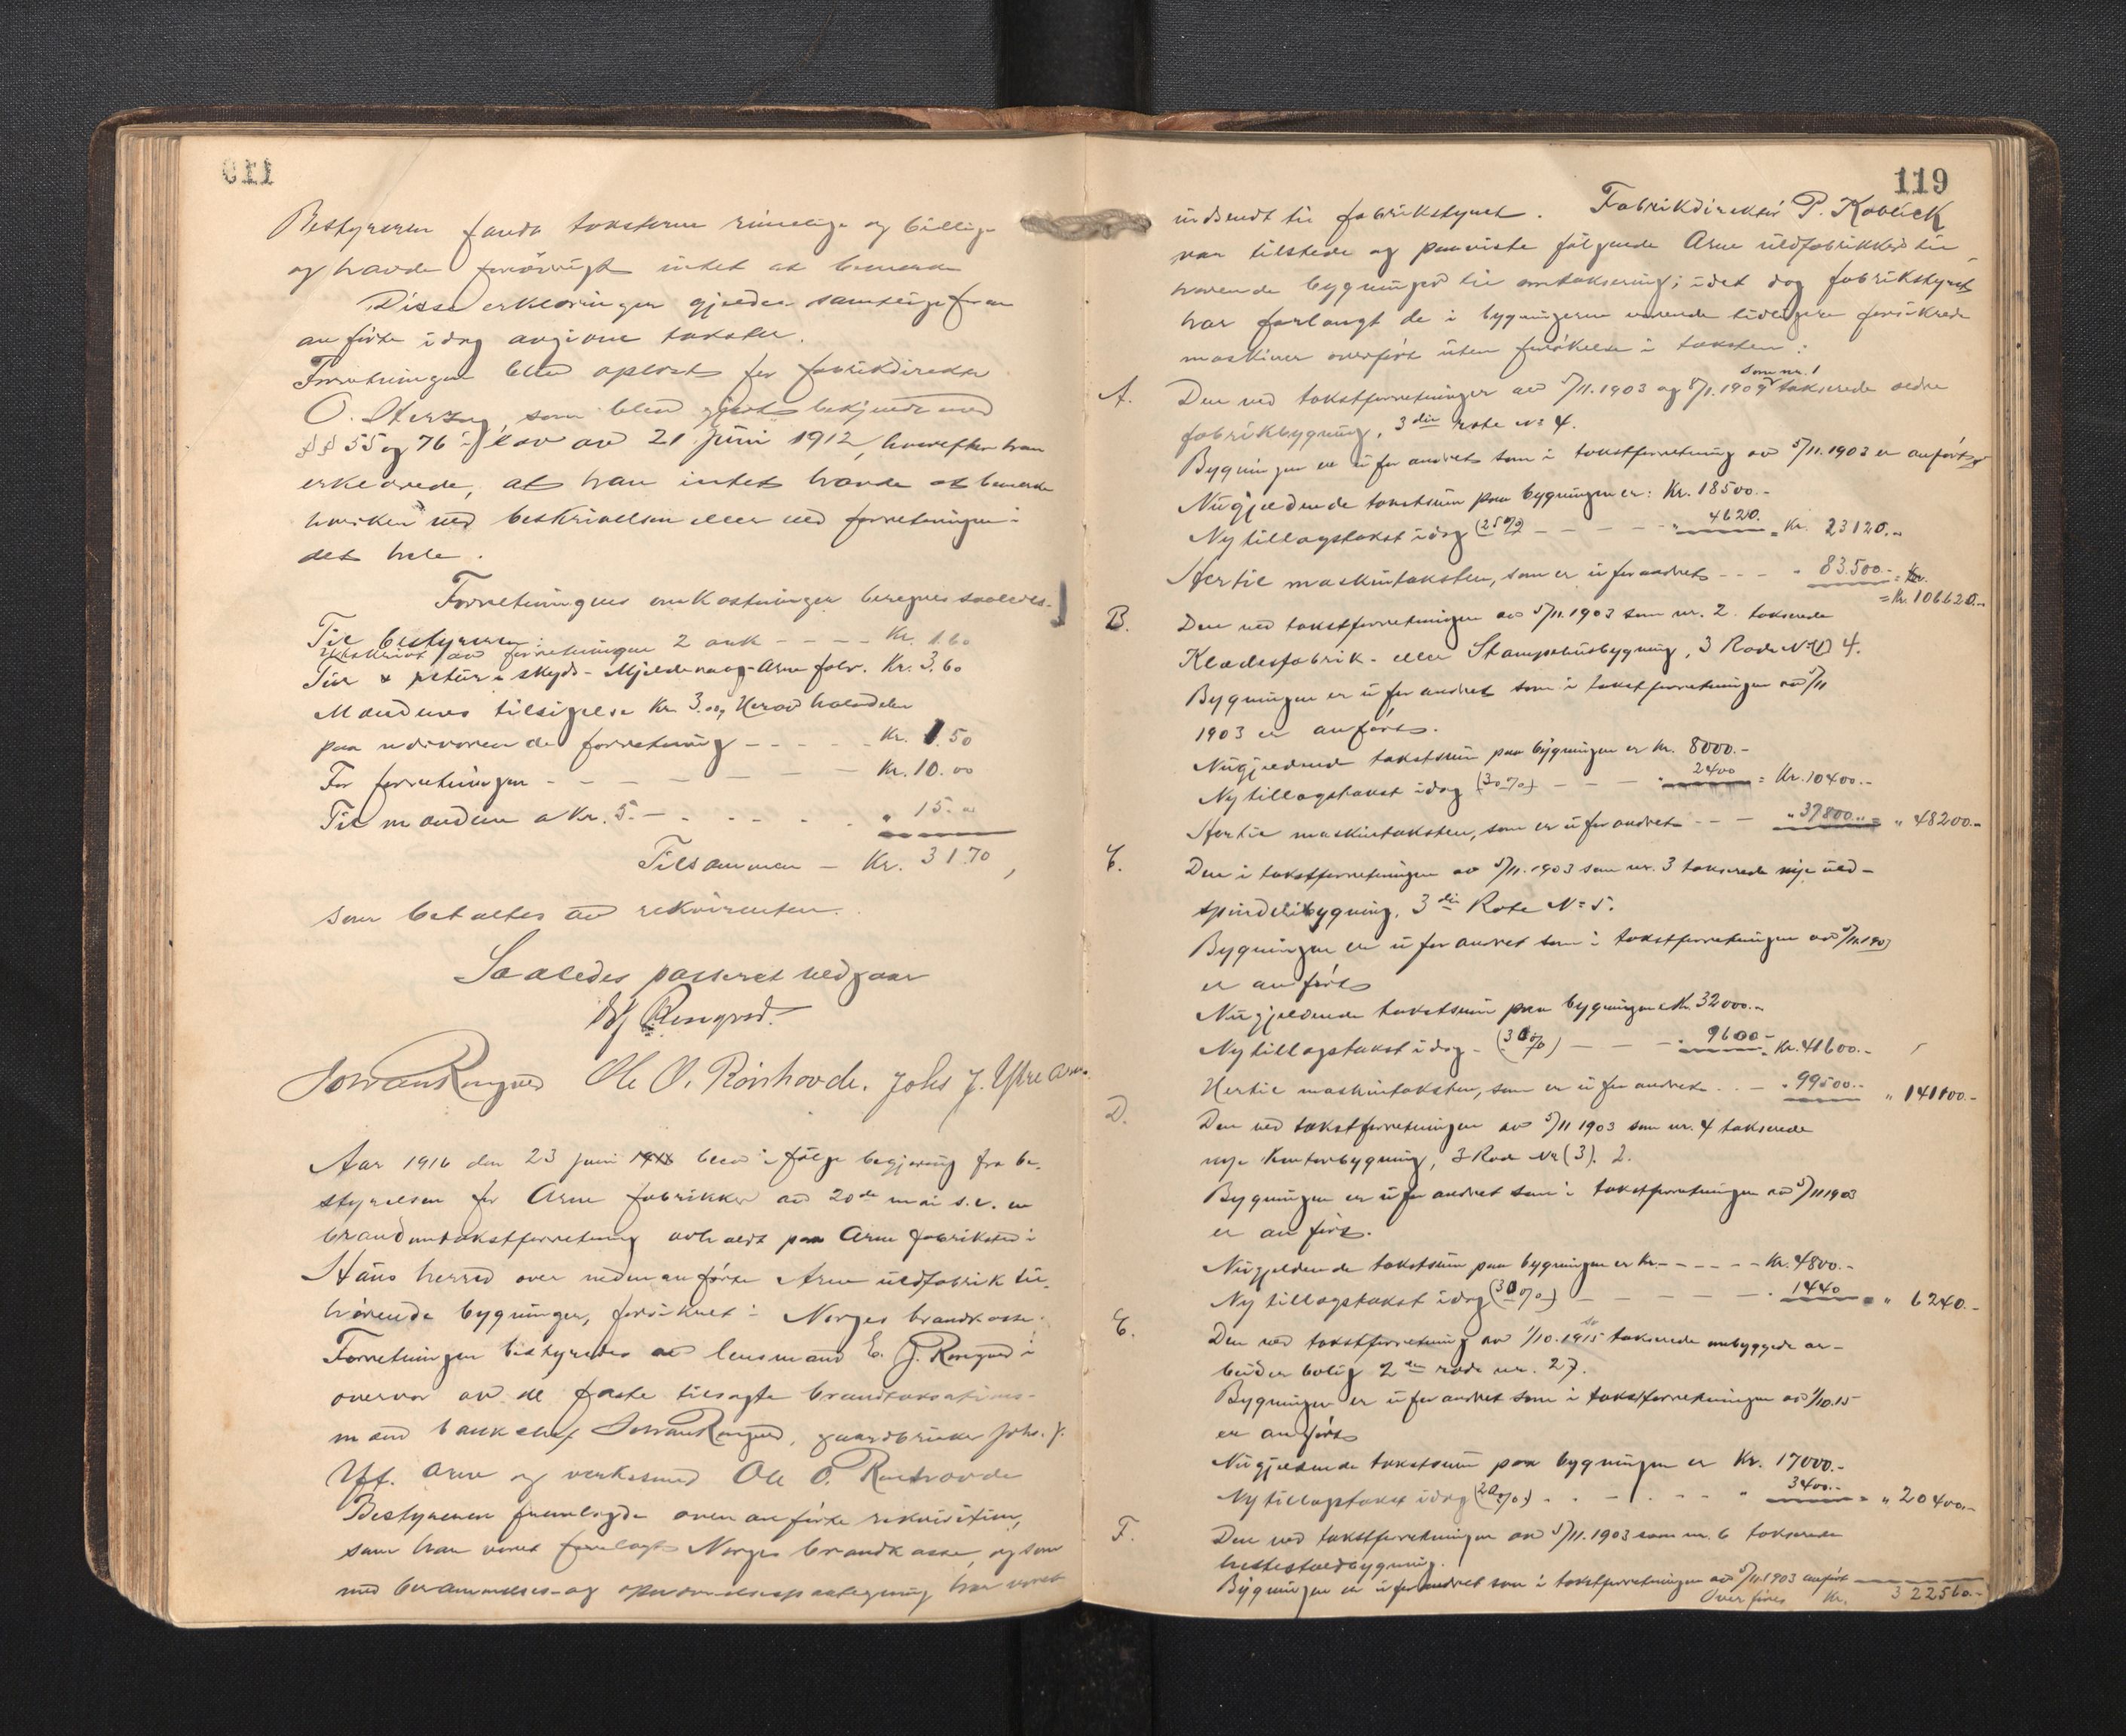 119
Bestyreren fandt taksterne rimelige og billige
og havde forøvrigt intet at bemerke
Disse erklæringer gjelder samtlige foran
anførte idag avgivne takster.
Forretningen blev oplæst for fabrikdirektør
O. Herzog, som blev gjort bekjendt med
§§ 55 og 76 i lov av 21 juni 1912, hvorefter han
erklærede, at han intet havde at bemerke
hverken ved beskrivelsen eller ved forretningen i
det hele.
Forretningens omkostninger beregnes saaledes.
Til bestyreren:
Utskrivt av forretningen 2 ark - - - - Kr. 1.60
Tur & retur i skyds - Mjeldemarg-Arne fabr. Kr. 3.60
Mændenes tilsigelse Kr. 3.00, Herav halvdelen
paa nærværende forretning - - - - - Kr. 1.50
For forretningen - - - - - - - Kr. 10.00
Til mændene a Kr. 5. - - - - - - " 15.00
Tilsammen - Kr. 31.70,
som betaltes av rekvirenten.
Saaledes passeret vedgaar
EJ Rongved.
Johan Rongved Ole O. Rønhovde. Johs J. Ytre Arne.
Aar 1916 den 23 juni blev ifølge begjæring fra be-
styrelsen for Arne fabrikker av 20de mai d.a. en
brandomtakstforretning avholdt paa Arne fabriksted i
Haus herred over nedenanførte Arne uldfabrik til-
hørende bygninger, forsikret i Norges brandkasse.
Forretningen bestyredes av lensmand E. J. Rongved i
overvær av de faste tilsagte brandtaksations-
mænd bankchef Johan Rongved, gaardbruker Johs. J.
Ytr. Arne og verksmed Ole O. Rønhovde
Bestyreren fremlagde ovenanførte rekvisition,
som har været forelagt Norges brandkasse, og som
med berammelses- og paategning har været
119
indsendt til fabrikstyret. Fabrikdirektør P. Koblick
var tilstede og paaviste følgende Arne uldfabrikker til-
hørende bygninger til omtaksering; idet dog fabrikstyret
har forlangt de i bygningerne værende tidligere forsikrede
maskiner overført uten forøkelse i taksten:
A. Den ved takstforretninger av 5/11.1903 og 8/1.1909 som nr. 1 takserede ældre
fabrikbygning, 3die rote No 4.
Bygningen er uforandret som i takstforretning av 5/11.1903 er anført.
Nugjeldende takstsum paa bygningen er: Kr. 18500.-
Ny tillægstakst idag (25%) - - - - - " 4620. = Kr. 23120.-
Hertil maskintaksten, som er uforandret - - - " 83.500.- = Kr.
= Kr. 106620.-
B. Den ved takstforretningen av 5/11.1903 som nr. 2 takserede
Klædesfabrik- eller Stampehusbygning, 3 Rode No (1) 4.
Bygningen er uforandret som i takstforretningen av 5/11
1903 er anført.
Nugjeldende takstsum paa bygningen er Kr. 8000.-
Ny tillægstakst idag (30%) - - - " 2400 = Kr. 10400.-
Hertil maskintaksten, som er uforandret - - - " 37800.- = " 48200.-
C. Den i takstforretningen av 5/11.1903 som nr. 3 takserede nye uld-
spinderibygning, 3die Rote No 5.
Bygningen er uforandret som i takstforretningen av 5/11.1903
er anført
Nugjeldende takstsum paa bygningen er Kr. 32000.-
Ny tillægstakst idag - (30%) - - - " 9600.- = Kr. 41600.-
Hertil maskintaksten, som er uforandret - - " 99500.- " 141100.-
D. Den ved takstforretningen av 5/11 1903 som nr. 4 takserede
nye Kontorbygning, 3 Rode Nr (3). 2.
Bygningen er uforandret som i takstforretningen av 5/11 1903
er anført.
Nugjeldende takstsum paa bygningen er Kr. - - - - - Kr. 4800.-
Ny tillægstakst idag (30%) - - - - - - " 1440 = " 6240.-
E. Den ved takstforretning av 1/10.1915 takserede ombyggede ar-
beiderbolig 2den rode nr. 27.
Bygningen er uforandret som i takstforretningen av 1/10.15
er anført
Nugjeldende takstsum paa bygningen er Kr. 17000.-
Ny tillægstakst idag (20%) - - - - - " 3400.- = " 20400.-
F. Den ved takstforretningen av 5/11.1903 som nr. 6 takserede
hestestaldbygning.
Bygningen er uforandret som i takstforretningen av 5/11.1903 anført
Overføres Kr. 322560.-